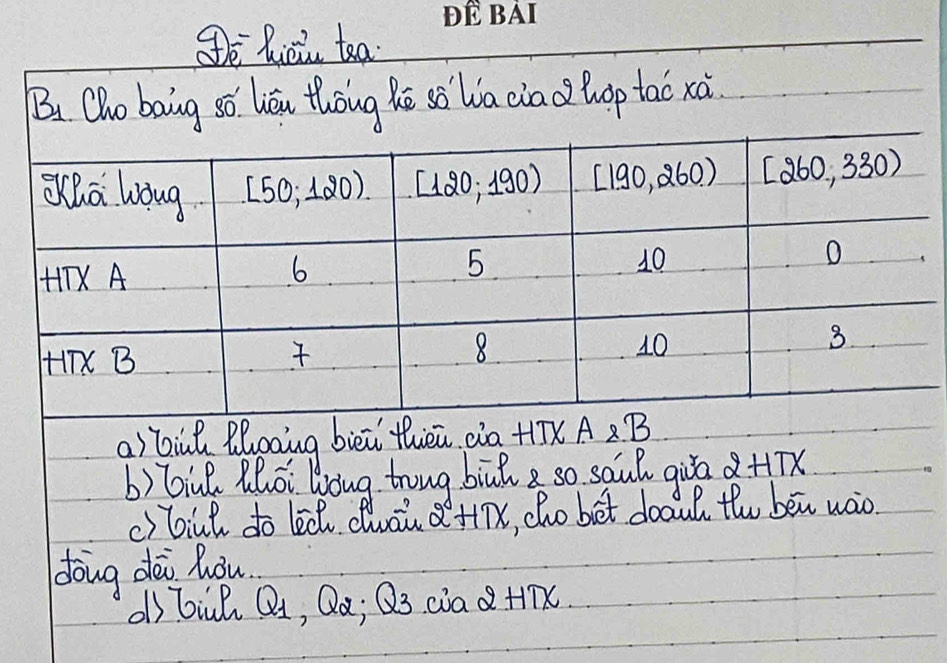 ĐỀ BÀI
Đề kiểm tra:
B1. Cho bảng số liệu thống kê số lúa của 2 hợp tác xã.
Khối lượng [50; 120) [120; 190) [190, 260) [260; 330)
HTX A 6 5 10 0
HTX B 7 8 10 3
a) Tính khoảng biến thiên của HTX A & B
b) Tính khối lượng trung bình & so sánh giữa 2 HTX
c) Tính độ lệch chuẩn 2 HTX, cho biết doanh thu bên nào
đồng đều hơn.
d) Tính Q1, Q2; Q3 của 2 HTX